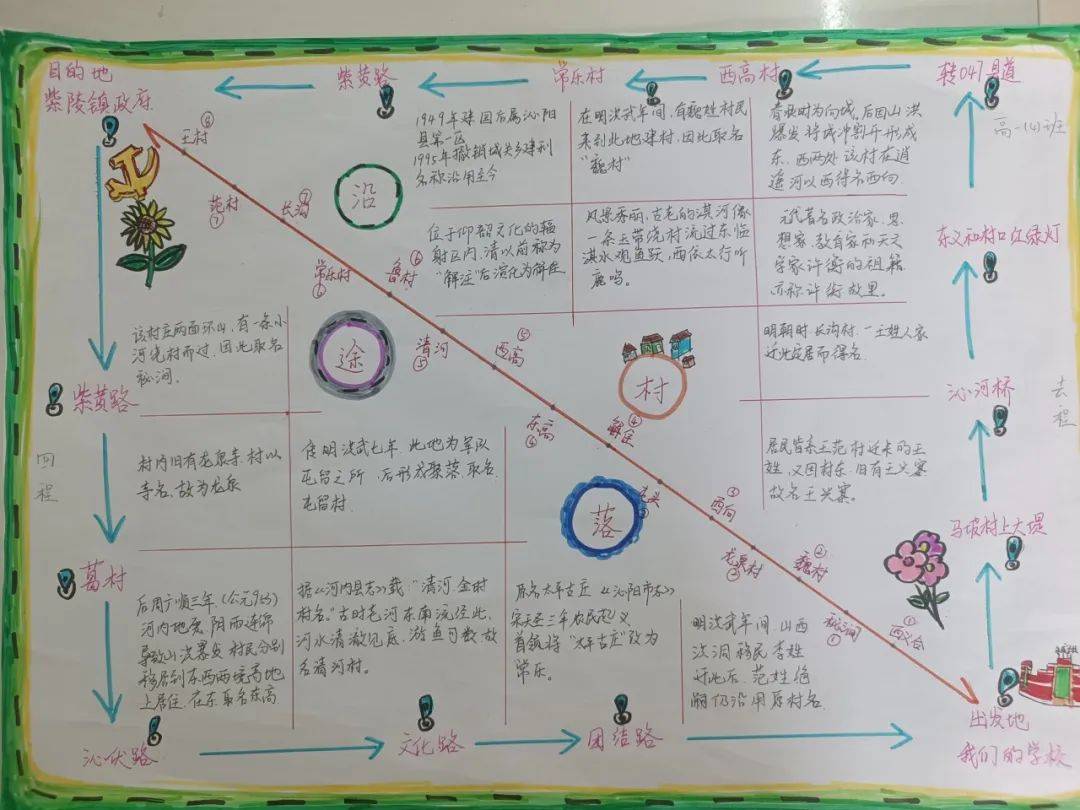 目的地
紫陵镇政府
紫黄路
常乐村
西高村
转047县道
高一(4)班
东义和村口红绿灯
沁河桥
去程
马坡村上大堤
出发地
我们的学校
紫黄路
回程
葛村
沁伏路
文化路
团结路
沿
途
村
落
王村
⑧
范村
⑦
长沟
⑦
常乐村
⑥
鲁村
⑥
清河
⑤
西高
⑤
东高
④
解住
④
③
西向
③
龙泉村
②
魏村
②
①
①
1949年建国后属沁阳
县第一区
1995年撤销城关乡建制
名称沿用至今
在明洪武年间,有魏姓村民
来到此地建村,因此取名
“魏村”
春秋时为向城,后因山洪
爆发将城冲割开形成
东、西两处该村在逍
遥河以西得名西向
位于仰韶文化的辐
射区内,清以前称为
“解注”后演化为解住
风景秀丽,古老的淇河像
一条玉带绕村流过东临
淇水观鱼跃,西依太行听
鹿鸣。
元代著名政治家、思
想家、教育家和天文
学家许衡的祖籍
亦称许衡故里。
该村庄两面环山,有一条小
河绕村而过,因此取名
秘涧。
明朝时,长沟村,一王姓人家
迁此定居而得名。
村内旧有龙泉寺,村以
寺名,故为龙泉
洪武七年 此地为军队
屯留之所,后形成聚落,取名
屯留村.
居民皆东王范村迁来的王
姓,又因村东,旧有王兴寨
故名王兴寨。
后周广顺三年,(公元953)
河内地震,阴雨连绵
导致山洪暴发,村民分别
移居到东西两块高地
上居住,在东取名东高
据《河内县志》载:“清河,全村
村名。”古时老河东南流经此,
河水清澈见底,游鱼可数故
名清河村。
原名太平古庄《沁阳市志》
宋天圣三年农民起义
首领将“太平古庄”改为
常乐。
明洪武年间,山西
洪洞移民李姓
迁此后,范姓绝
嗣仍沿用原村名